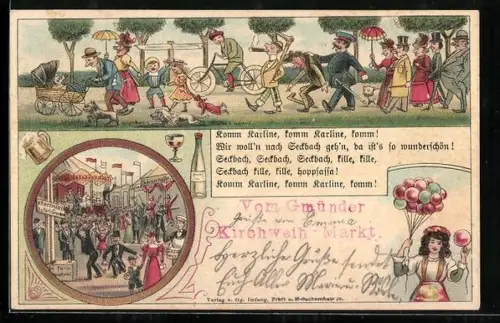 Komm Karline, komm Karline, komm!
Wir woll'n nach Seckbach geh'n, da ist's so wunderschön!
Seckbach, Seckbach, Seckbach, kille, kille,
Seckbach kille, kille, hoppsassa!
Komm Karline, komm Karline, komm!
Vom Gmünder
Grüße von Emma
Kirchweih-Markt.
Herzliche Grüße sendet
Euch Allen
Verlag v.